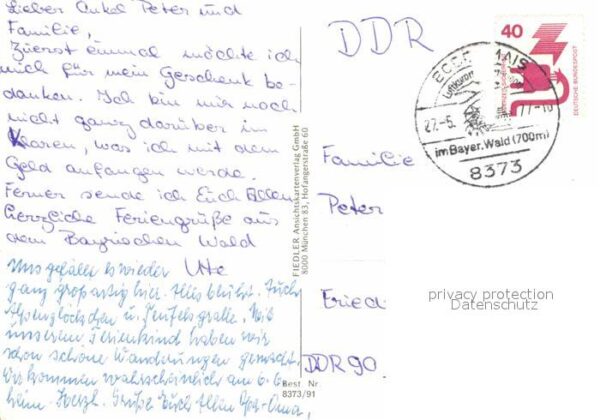 Lieber Onkel Peter und
Familie,
Zuerst einmal möchte ich
mich für mein Geschenk be-
danken. Ich bin mir noch
nicht ganz darüber im
Klaren, was ich mit dem
Geld anfangen werde.
Ferner sende ich Euch Allen
herzliche Feriengrüße aus
dem Bayrischen Wald
Ute
Uns gefällt es wieder
ganz großartig hier. Alles blüht. Auch
Alpenglöckchen u. Teufelskralle. Mit
unserem Ferienkind haben wir
schon schöne Wanderungen gemacht.
Wir kommen wahrscheinlich am 6.6.
heim. Herzl. Grüße Euch Allen Opa-Oma,
FIEDLER Ansichtskartenverlag GmbH
8000 München 83, Hofangerstraße 60
Best Nr.
8373/91
DDR
40
DEUTSCHE BUNDESPOST
Luftkurort
27.-5.
77-10
im Bayer. Wald (700m)
8373
Familie
Peter
Fried
DDR 90
privacy protection
Datenschutz